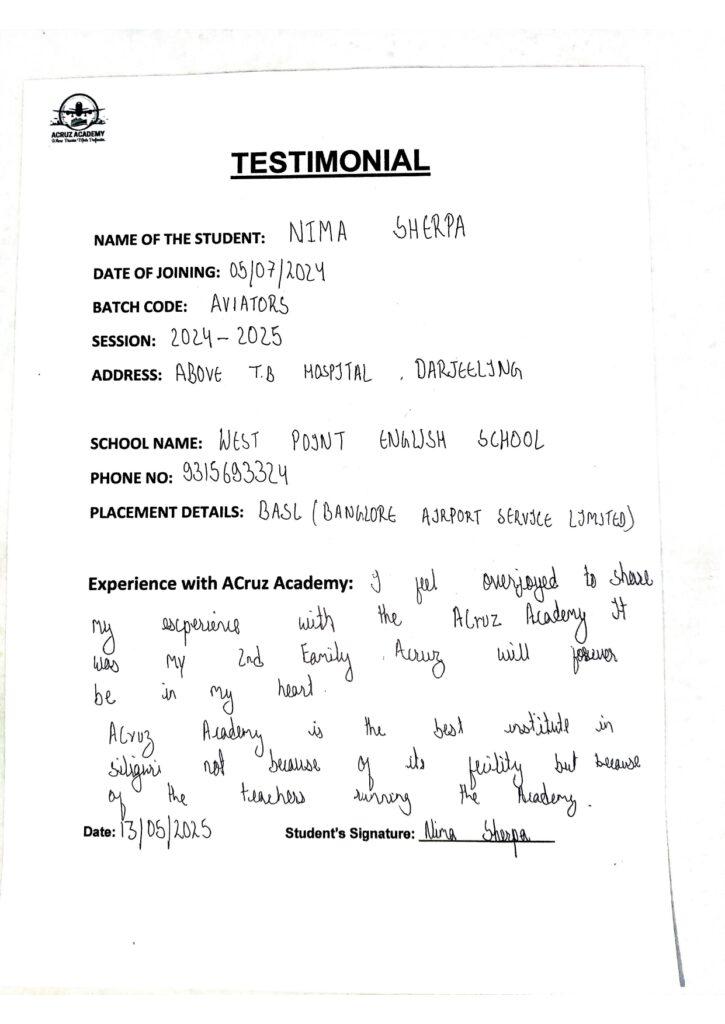 ACRUZ ACADEMY
TESTIMONIAL
NAME OF THE STUDENT: NIMA SHERPA
DATE OF JOINING: 05/07/2024
BATCH CODE: AVIATORS
SESSION: 2024 – 2025
ADDRESS: ABOVE T.B HOSPITAL , DARJEELING
SCHOOL NAME: WEST POINT ENGLISH SCHOOL
PHONE NO: 9315693324
PLACEMENT DETAILS: BASL (BANGLORE AIRPORT SERVICE LIMITED)
Experience with ACruz Academy: I feel overjoyed to share
my experience with the ACruz Academy It
was my 2nd Family . Acruz will forever
be in my heart .
ACruz Academy is the best institute in
Siliguri not because of its fecility but because
of the teachers running the Academy .
Date: 13/05/2025 Student's Signature: Nima Sherpa